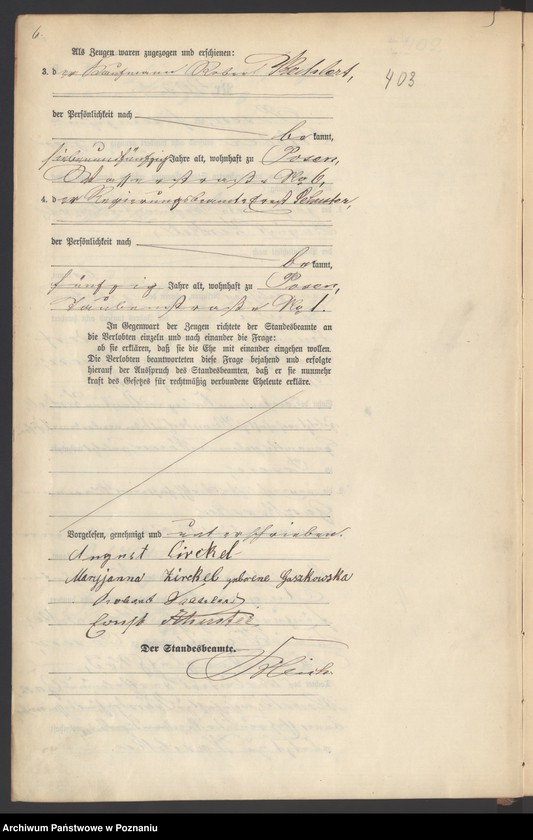 6.
Als Zeugen waren zugezogen und erschienen:
3. der Kaufmann Robert
403
der Persönlichkeit nach
bekannt,
siebenundfünfzig Jahre alt, wohnhaft zu Posen,
Wasserstraße No 6,
4. der Regierungsbeamte Ernst
der Persönlichkeit nach
bekannt,
fünfzig Jahre alt, wohnhaft zu Posen,
Taubenstraße No 1.
In Gegenwart der Zeugen richtete der Standesbeamte an
die Verlobten einzeln und nach einander die Frage:
ob sie erklären, daß sie die Ehe mit einander eingehen wollen.
Die Verlobten beantworteten diese Frage bejahend und erfolgte
hierauf der Ausspruch des Standesbeamten, daß er sie nunmehr
kraft des Gesetzes für rechtmäßig verbundene Eheleute erkläre.
Vorgelesen, genehmigt und unterschrieben.
August Zirckel
Maryjanna Zirckel geborene Gaszkowska
Robert
Ernst
Der Standesbeamte.
Archiwum Państwowe w Poznaniu